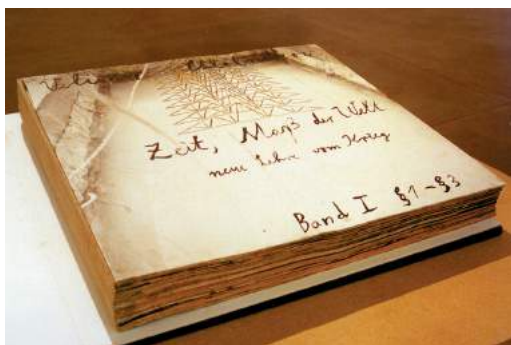 Zeit, Maß der Welt
neue Lehre vom Krieg
Band I §1-§3